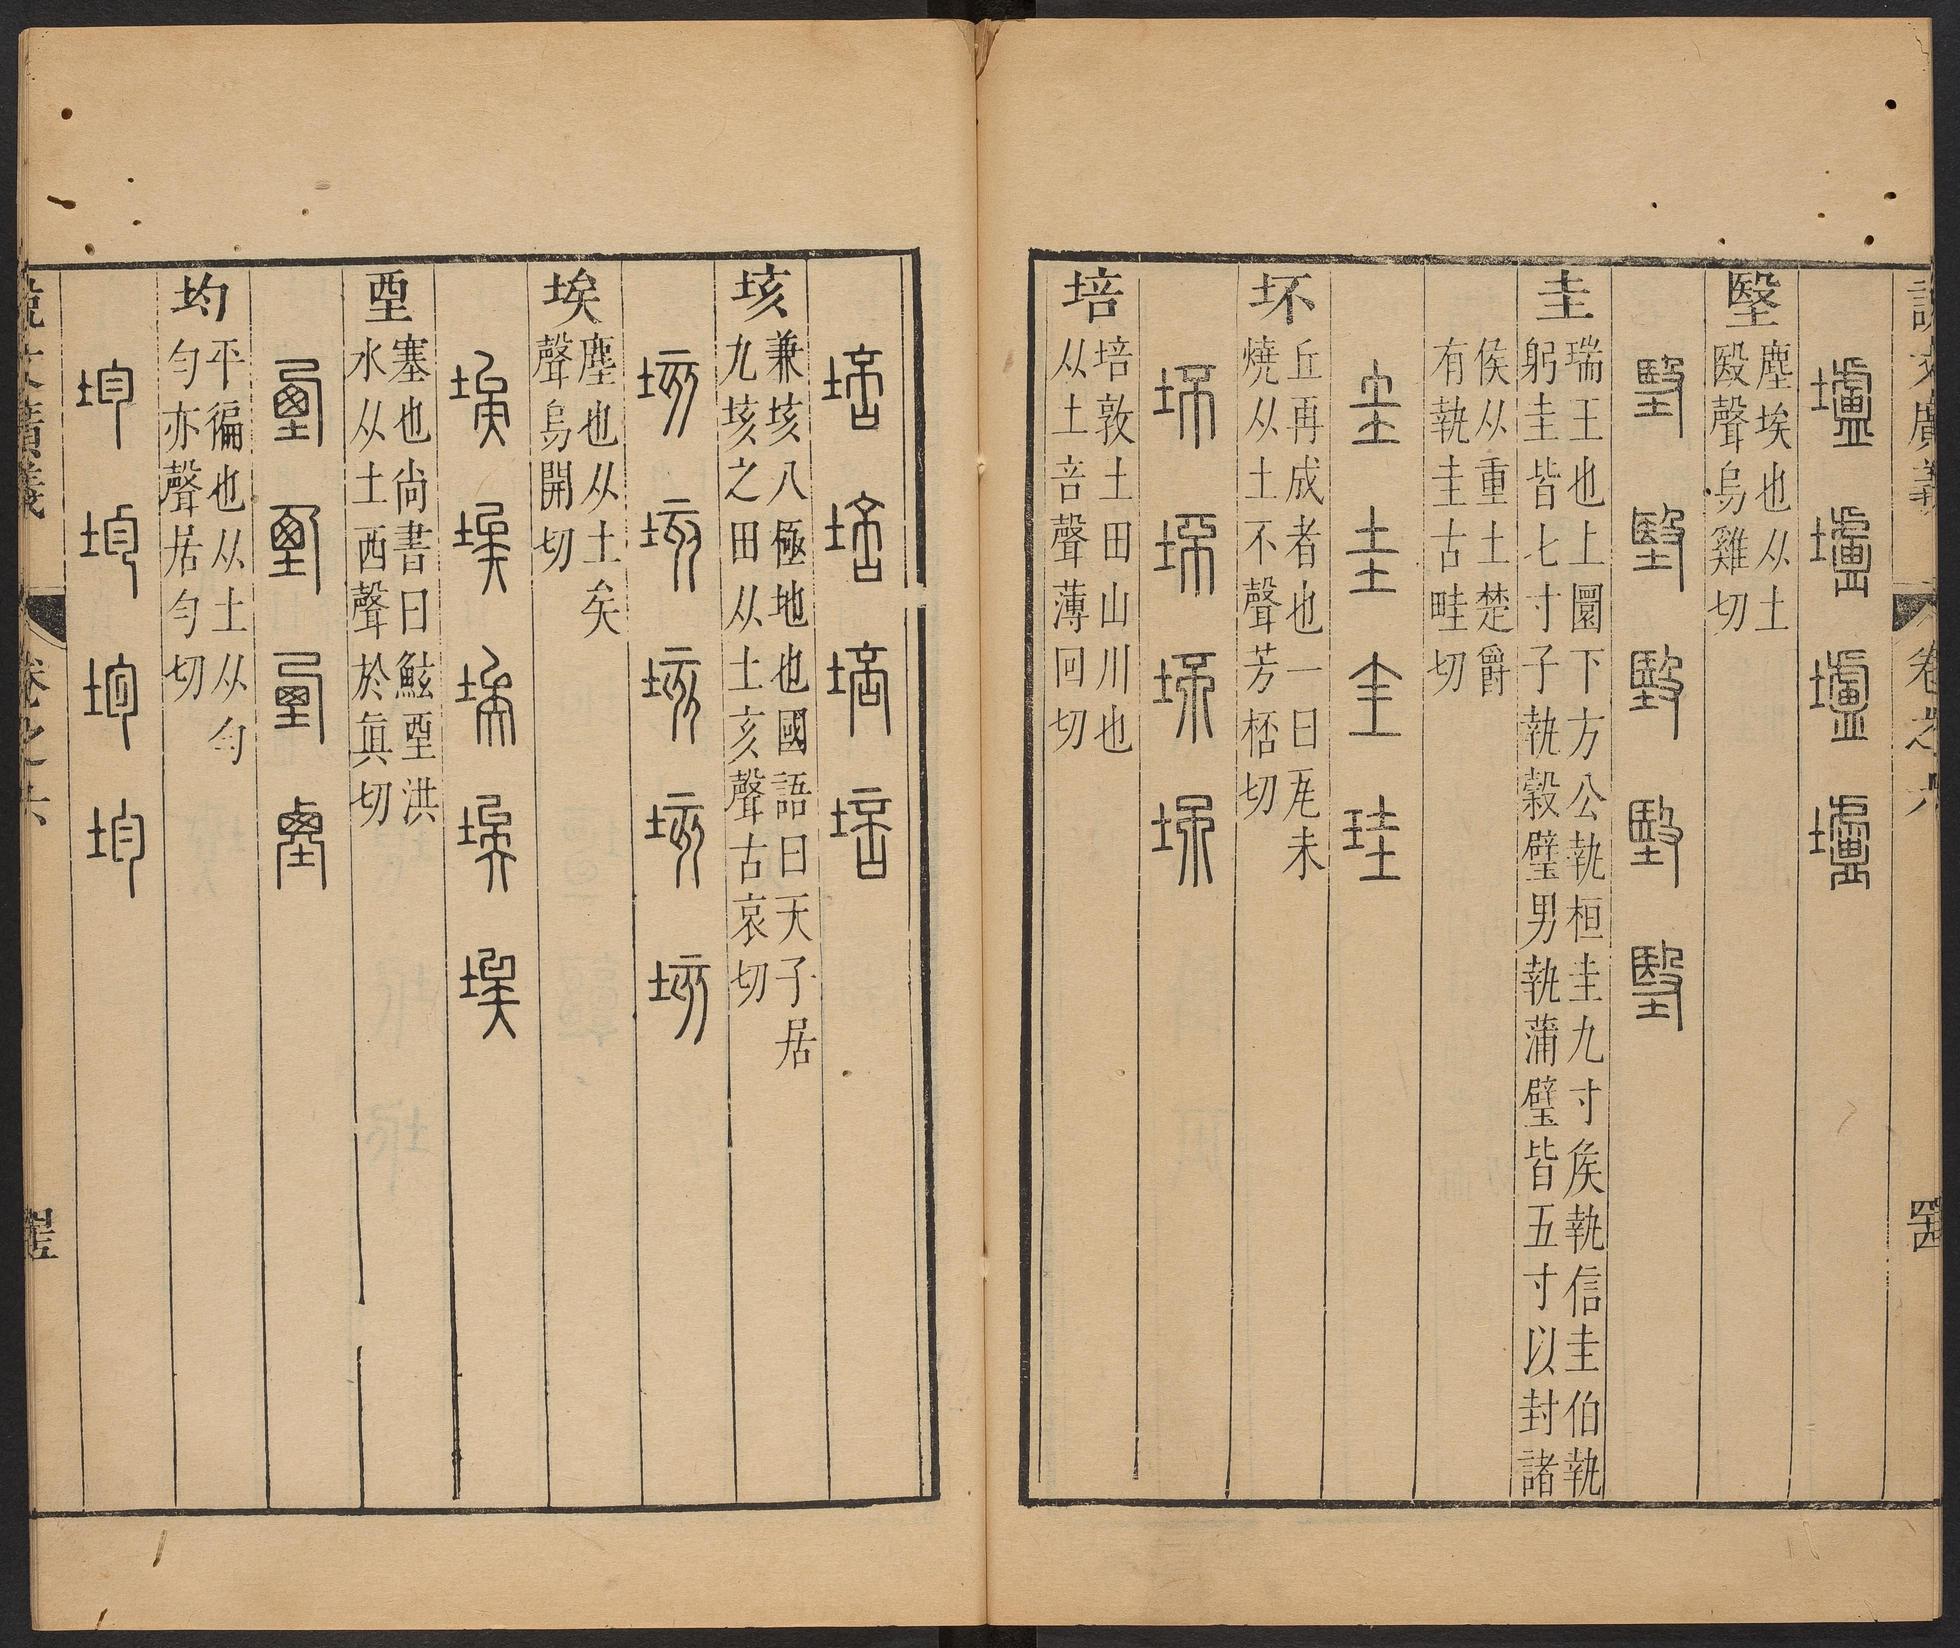 說文廣義 卷之六 四十四
壚 壚 壚 壚
堅 塵埃也从土
殹聲烏雞切
堅 堅 堅 堅 堅
圭 瑞王也上圜下方公執桓圭九寸矦執信圭伯執
躬圭皆七寸子執穀璧男執蒲璧皆五寸以封諸
侯从重土楚爵
有執圭古畦切
圭 圭 圭 珪
坏 丘再成者也一曰瓦未
燒从土不聲芳桮切
坏 坏 坏 坏
培 培敦土田山川也
从土咅聲薄回切
培 培 培 培
垓 兼垓八極地也國語曰天子居
九垓之田从土亥聲古哀切
垓 垓 垓 垓 垓
埃 塵也从土矣
聲烏開切
埃 埃 埃 埃 埃
垔 塞也尚書曰鮌垔洪
水从土西聲於眞切
垔 垔 垔 垔
均 平徧也从土从勻
勻亦聲居勻切
均 均 均 均
說文廣義 卷之六